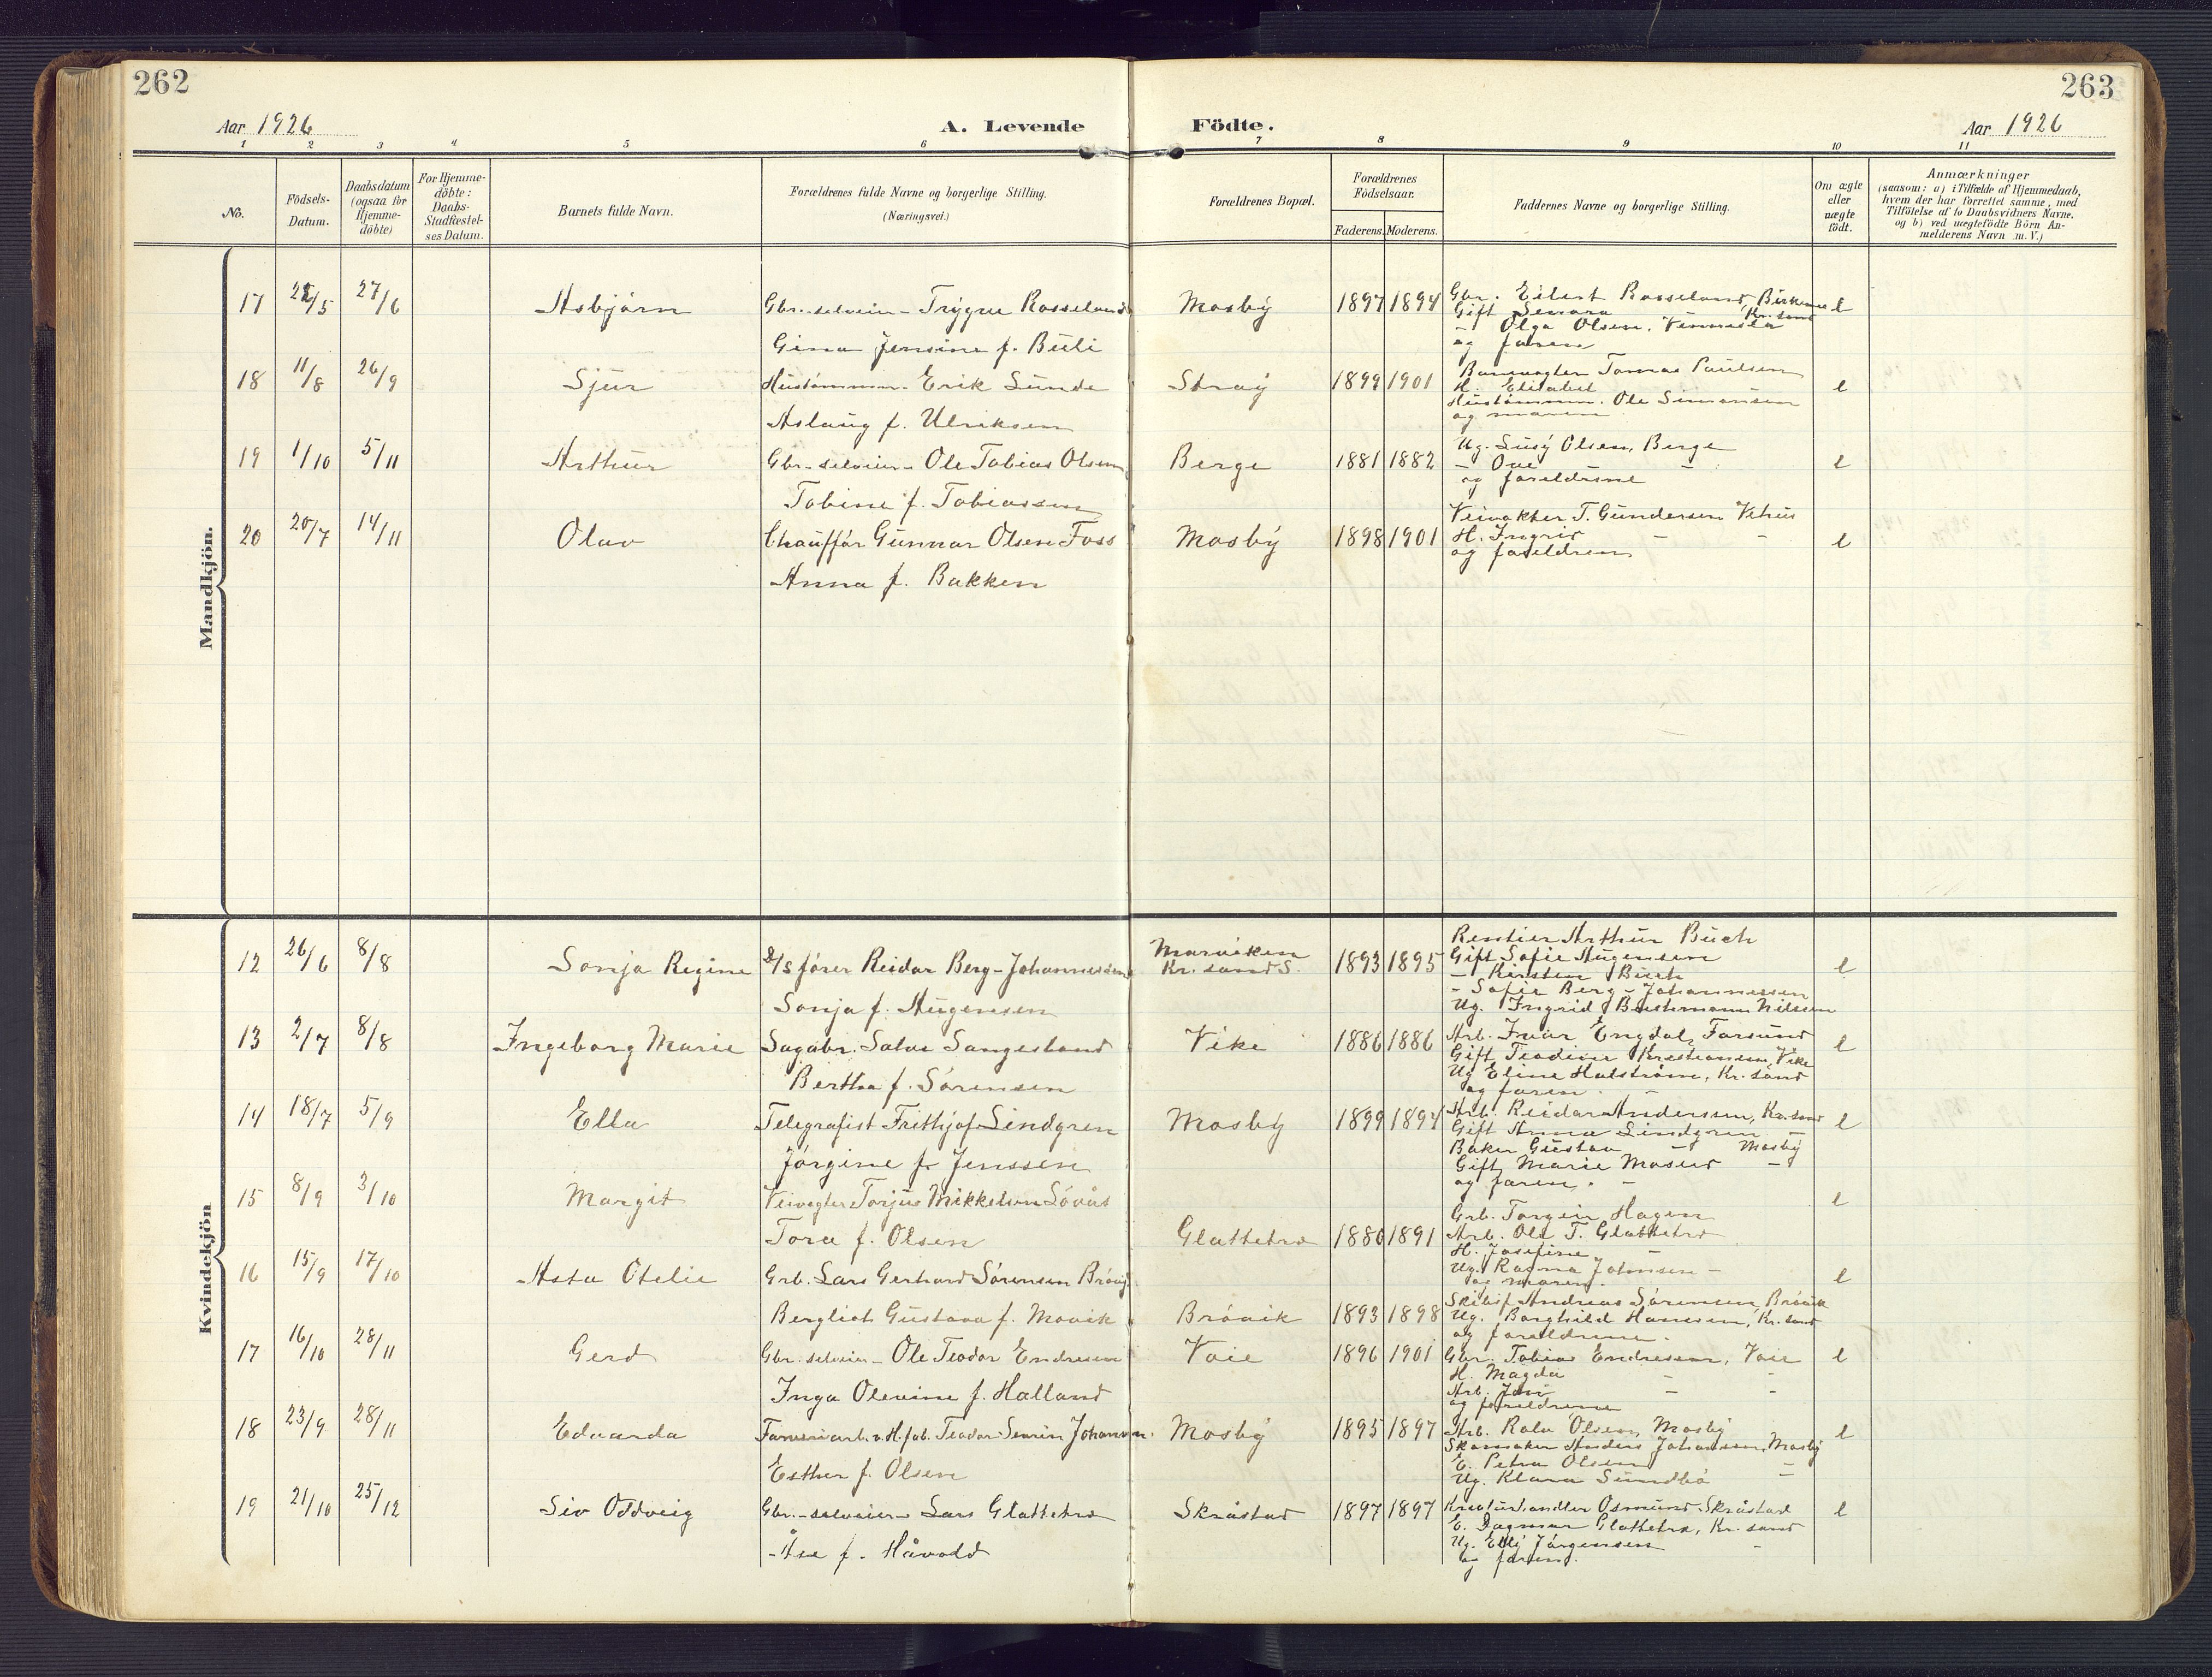 262
263
Aar 1926
A. Levende Födte.
Aar 1926
1 2 3 4 5 6 7 8 9 10 11
No.
Födsels-
Datum.
Daabsdatum
(ogsaa for
Hjemme-
döbte)
For Hjemme-
döbte:
Daabs-
Stadfæstel-
ses Datum.
Barnets fulde Navn.
Forældrenes fulde Navne og borgerlige Stilling.
(Næringsvei.)
Forældrenes Bopæl.
Forældrenes
Födselsaar.
Faderens. Moderens.
Faddernes Navne og borgerlige Stilling.
Om ægte
eller
uægte
födt.
Anmærkninger
(saasom: a) i Tilfælde af Hjemmedaab,
hvem der har forrettet samme, med
Tilföielse af to Daabsvidners Navne.
og b) ved uægtefödte Börn An-
melderens Navn m. V.)
Mandkjön.
17 /5 27/6 Asbjörn Gbr.-selveier- Trygve Rosseland Mosby 1897 1894 Gbr. Eilert Rosseland, Birkenes e
Gift Kr.sand
- Olga Olsen, Vennesla
Gina Jensine f. Büli og faren
18 11/8 26/9 Sjur Hustömmer- Erik Sunde Straÿ 1899 1901 Banevagter Tomas Paulsen e
H. Elisabet
Hustömmer. Ole Simonsen
Aslaug f. Ulriksen og moren
19 1/10 5/11 Arthur Gbr-selveier- Ole Tobias Olsen Berge 1881 1882 Ug. Susÿ Olsen, Berge e
- Ove - -
og foreldrene
Tobine f. Tobiassen
20 20/7 14/11 Olav Chaufför Gunnar Olsen Foss Mosby 1898 1901 Veivokter T. Gundersen Vehus e
H. Ingrid - -
og foreldrene
Anna f. Bakken
Kvindekjön
12 26/6 8/8 Sonja Regine D/S förer Reidar Berg-Johannessen Marviken 1893 1895 Rentier Arthur Buch e
Kr.sand S. Gift Sofie Augensen
- Kirsten Buch
- Sofie Berg-Johannessen
Sonja f. Augensen Ug. Ingrid Nilssen
13 2/7 8/8 Ingeborg Marie Sagabr. Salve Sangesland Vike 1886 1886 Arb. Ivar Engdal, Farsund e
Gift Teodine Kristiansen, Vike
Ug Eline Halström, Kr.sand
Bertha f. Sörensen og faren. -
14 18/7 5/9 Ella Telegrafist Frithjof Lindgren Mosby 1899 1894 Arb. Reidar Andersen, Kr.sand e
Gift Anna Lindgren -
Baker Gustav - Mosby
Jörgine f. Jenssen Gift Marie Moseid -
og faren. -
15 8/9 3/10 Margit Veivogter Torjus Mikkelsen Lövås Glattetre 1880 1891 e
Tora f. Olsen Grb. Torgeir Hagen
Arb. Ole T. Glattetre
H. Josefine -
Ug. Ragna Johnsen -
og moren.
16 15/9 17/10 Asta Otelie Grb. Lars Gerhard Sörensen Brövig e
Bergliot Gustava f. Movik Brövik 1893 1898 Andreas Sörensen, Brövik
Ug. Borghild Hansen, Kr.sand
og foreldrene.
17 16/10 28/11 Gerd Gbr.selveier- Ole Teodor Endresen Voie 1896 1901 Gbr. Tobias Endresen, Voie e
H. Magda - -
Arb. - -
Inga Olevine f. Halland og foreldrene
18 23/9 28/11 Edvarda Teodor Severin Johansen. Mosby 1895 1897 Arb. Rolv Olsen, Mosby e
Skomaker Anders Johansen, Mosby
E. Petra Olsen -
Esther f. Olsen Ug. Klara Sundbö -
19 21/10 25/12 Siv Oddveig Gbr.-selveier- Lars Glattetre Skråstad 1897 1897 Kreaturhandler Osmund Skråstad e
E. Dagmar Glattetre, Kr.sand
Ug. Elly Jörgensen -
Åse f. Håvold og faren.